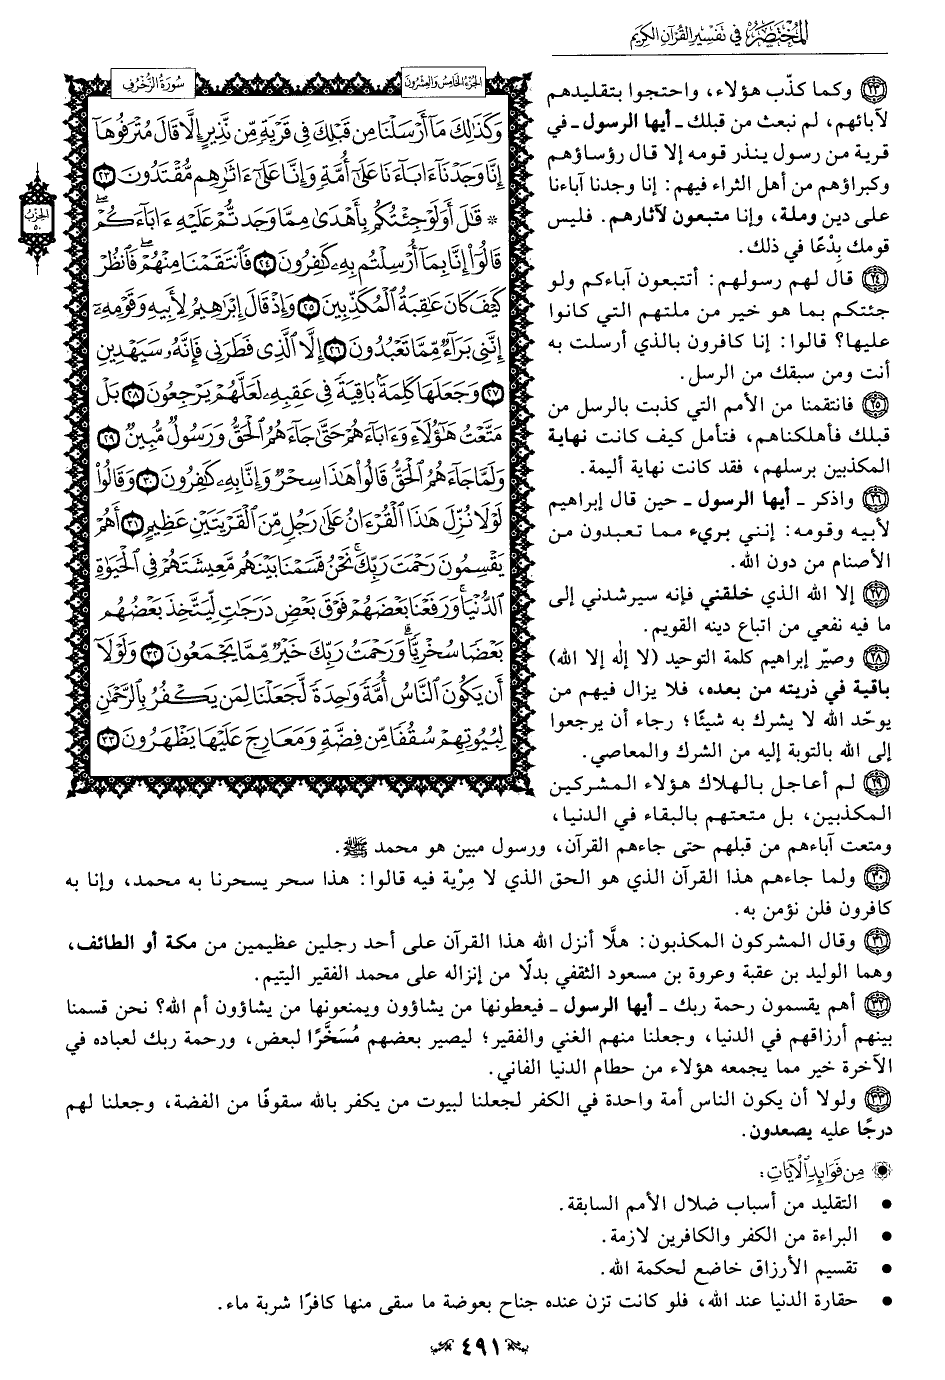 المختصر في تفسير القرآن الكريم
الجزء الخامس والعشرون
سورة الزخرف
وَكَذَٰلِكَ مَآ أَرْسَلْنَا مِن قَبْلِكَ فِي قَرْيَةٍ مِّن نَّذِيرٍ إِلَّا قَالَ مُتْرَفُوهَآ
إِنَّا وَجَدْنَآ ءَابَآءَنَا عَلَىٰٓ أُمَّةٍ وَإِنَّا عَلَىٰٓ ءَاثَٰرِهِم مُّقْتَدُونَ ٢٣
* قَٰلَ أَوَلَوْ جِئْتُكُم بِأَهْدَىٰ مِمَّا وَجَدتُّمْ عَلَيْهِ ءَابَآءَكُمْۖ
قَالُوٓاْ إِنَّا بِمَآ أُرْسِلْتُم بِهِۦ كَٰفِرُونَ ٢٤ فَٱنتَقَمْنَا مِنْهُمْۖ فَٱنظُرْ
كَيْفَ كَانَ عَٰقِبَةُ ٱلْمُكَذِّبِينَ ٢٥ وَإِذْ قَالَ إِبْرَٰهِيمُ لِأَبِيهِ وَقَوْمِهِۦٓ
إِنَّنِي بَرَآءٌ مِّمَّا تَعْبُدُونَ ٢٦ إِلَّا ٱلَّذِي فَطَرَنِي فَإِنَّهُۥ سَيَهْدِينِ
٢٧ وَجَعَلَهَا كَلِمَةًۢ بَاقِيَةً فِي عَقِبِهِۦ لَعَلَّهُمْ يَرْجِعُونَ ٢٨ بَلْ
مَتَّعْتُ هَٰٓؤُلَآءِ وَءَابَآءَهُمْ حَتَّىٰ جَآءَهُمُ ٱلْحَقُّ وَرَسُولٌ مُّبِينٌ ٢٩
وَلَمَّا جَآءَهُمُ ٱلْحَقُّ قَالُواْ هَٰذَا سِحْرٌ وَإِنَّا بِهِۦ كَٰفِرُونَ ٣٠ وَقَالُواْ
لَوْلَا نُزِّلَ هَٰذَا ٱلْقُرْءَانُ عَلَىٰ رَجُلٍ مِّنَ ٱلْقَرْيَتَيْنِ عَظِيمٍ ٣١ أَهُمْ
يَقْسِمُونَ رَحْمَتَ رَبِّكَۚ نَحْنُ قَسَمْنَا بَيْنَهُم مَّعِيشَتَهُمْ فِي ٱلْحَيَوٰةِ
ٱلدُّنْيَاۚ وَرَفَعْنَا بَعْضَهُمْ فَوْقَ بَعْضٍ دَرَجَٰتٍ لِّيَتَّخِذَ بَعْضُهُم
بَعْضًا سُخْرِيًّاۗ وَرَحْمَتُ رَبِّكَ خَيْرٌ مِّمَّا يَجْمَعُونَ ٣٢ وَلَوْلَآ
أَن يَكُونَ ٱلنَّاسُ أُمَّةً وَٰحِدَةً لَّجَعَلْنَا لِمَن يَكْفُرُ بِٱلرَّحْمَٰنِ
لِبُيُوتِهِمْ سُقُفًا مِّن فِضَّةٍ وَمَعَارِجَ عَلَيْهَا يَظْهَرُونَ ٣٣
الحزب
٥٠
٢٣ وكما كذّب هؤلاء، واحتجوا بتقليدهم
لآبائهم، لم نبعث من قبلك ـ أيها الرسول ـ في
قرية من رسول ينذر قومه إلا قال رؤساؤهم
وكبراؤهم من أهل الثراء فيهم: إنا وجدنا آباءنا
على دين وملة، وإنا متبعون لآثارهم. فليس
قومك بِدْعًا في ذلك.
٢٤ قال لهم رسولهم: أتتبعون آباءكم ولو
جئتكم بما هو خير من ملتهم التي كانوا
عليها؟ قالوا: إنا كافرون بالذي أرسلت به
أنت ومن سبقك من الرسل.
٢٥ فانتقمنا من الأمم التي كذبت بالرسل من
قبلك فأهلكناهم، فتأمل كيف كانت نهاية
المكذبين برسلهم، فقد كانت نهاية أليمة.
٢٦ واذكر ـ أيها الرسول ـ حين قال إبراهيم
لأبيه وقومه: إنني بريء مما تعبدون من
الأصنام من دون الله.
٢٧ إلا الله الذي خلقني فإنه سيرشدني إلى
ما فيه نفعي من اتباع دينه القويم.
٢٨ وصيّر إبراهيم كلمة التوحيد (لا إلٰه إلا الله)
باقية في ذريته من بعده، فلا يزال فيهم من
يوحّد الله لا يشرك به شيئًا؛ رجاء أن يرجعوا
إلى الله بالتوبة إليه من الشرك والمعاصي.
٢٩ لم أعاجل بالهلاك هؤلاء المشركين
المكذبين، بل متعتهم بالبقاء في الدنيا،
ومتعت آباءهم من قبلهم حتى جاءهم القرآن، ورسول مبين هو محمد ﷺ.
٣٠ ولما جاءهم هذا القرآن الذي هو الحق الذي لا مِرْية فيه قالوا: هذا سحر يسحرنا به محمد، وإنا به
كافرون فلن نؤمن به.
٣١ وقال المشركون المكذبون: هلَّا أنزل الله هذا القرآن على أحد رجلين عظيمين من مكة أو الطائف،
وهما الوليد بن عقبة وعروة بن مسعود الثقفي بدلًا من إنزاله على محمد الفقير اليتيم.
٣٢ أهم يقسمون رحمة ربك ـ أيها الرسول ـ فيعطونها من يشاؤون ويمنعونها من يشاؤون أم الله؟ نحن قسمنا
بينهم أرزاقهم في الدنيا، وجعلنا منهم الغني والفقير؛ ليصير بعضهم مُسَخَّرًا لبعض، ورحمة ربك لعباده في
الآخرة خير مما يجمعه هؤلاء من حطام الدنيا الفاني.
٣٣ ولولا أن يكون الناس أمة واحدة في الكفر لجعلنا لبيوت من يكفر بالله سقوفًا من الفضة، وجعلنا لهم
درجًا عليه يصعدون.
من فوائد الآيات:
• التقليد من أسباب ضلال الأمم السابقة.
• البراءة من الكفر والكافرين لازمة.
• تقسيم الأرزاق خاضع لحكمة الله.
• حقارة الدنيا عند الله، فلو كانت تزن عنده جناح بعوضة ما سقى منها كافرًا شربة ماء.
٤٩١